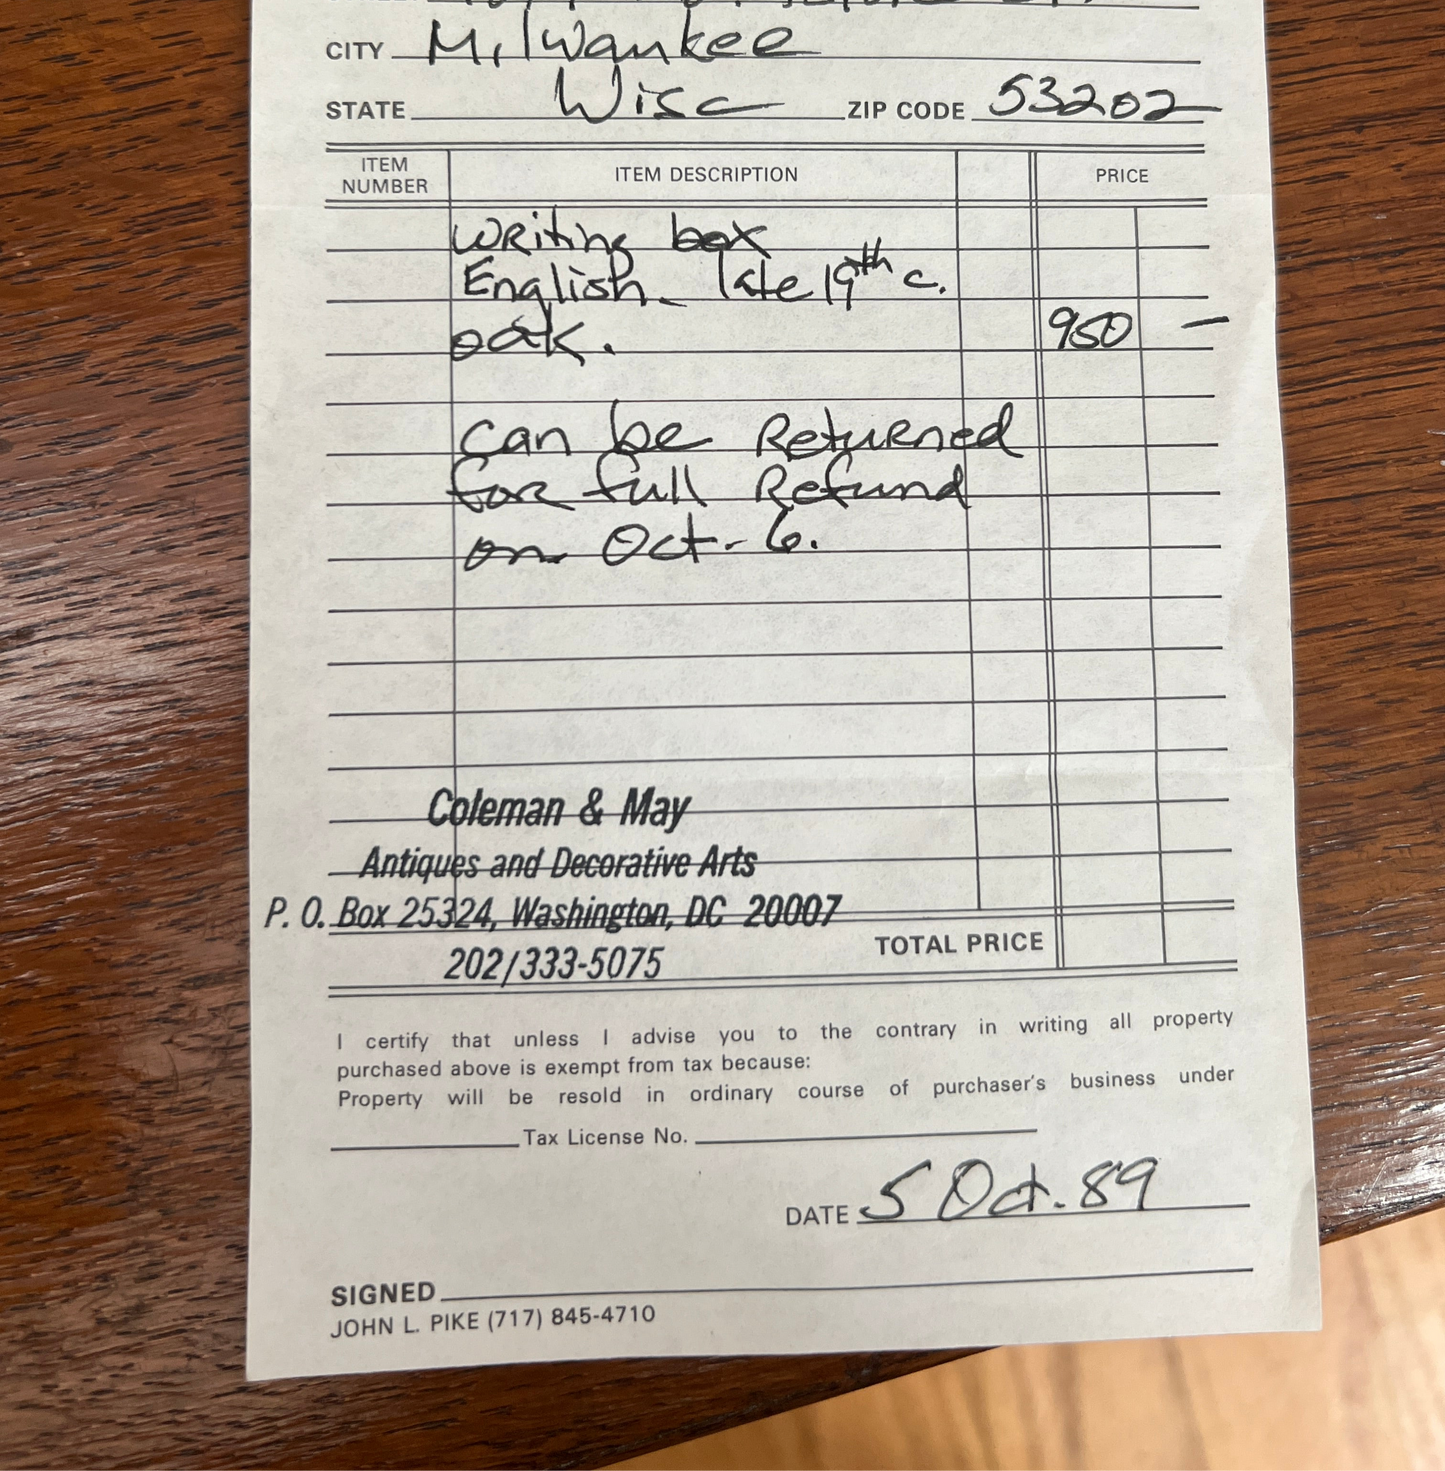 CITY Milwaukee
STATE Wisc ZIP CODE 53202
ITEM NUMBER ITEM DESCRIPTION PRICE
Writing box
English - late 19th c.
oak. 950 —
Can be Returned
for full Refund
on Oct. 6.
Coleman & May
Antiques and Decorative Arts
P. O. Box 25324, Washington, DC 20007
202/333-5075 TOTAL PRICE
I certify that unless I advise you to the contrary in writing all property
purchased above is exempt from tax because:
Property will be resold in ordinary course of purchaser's business under
Tax License No.
DATE 5 Oct. 89
SIGNED
JOHN L. PIKE (717) 845-4710